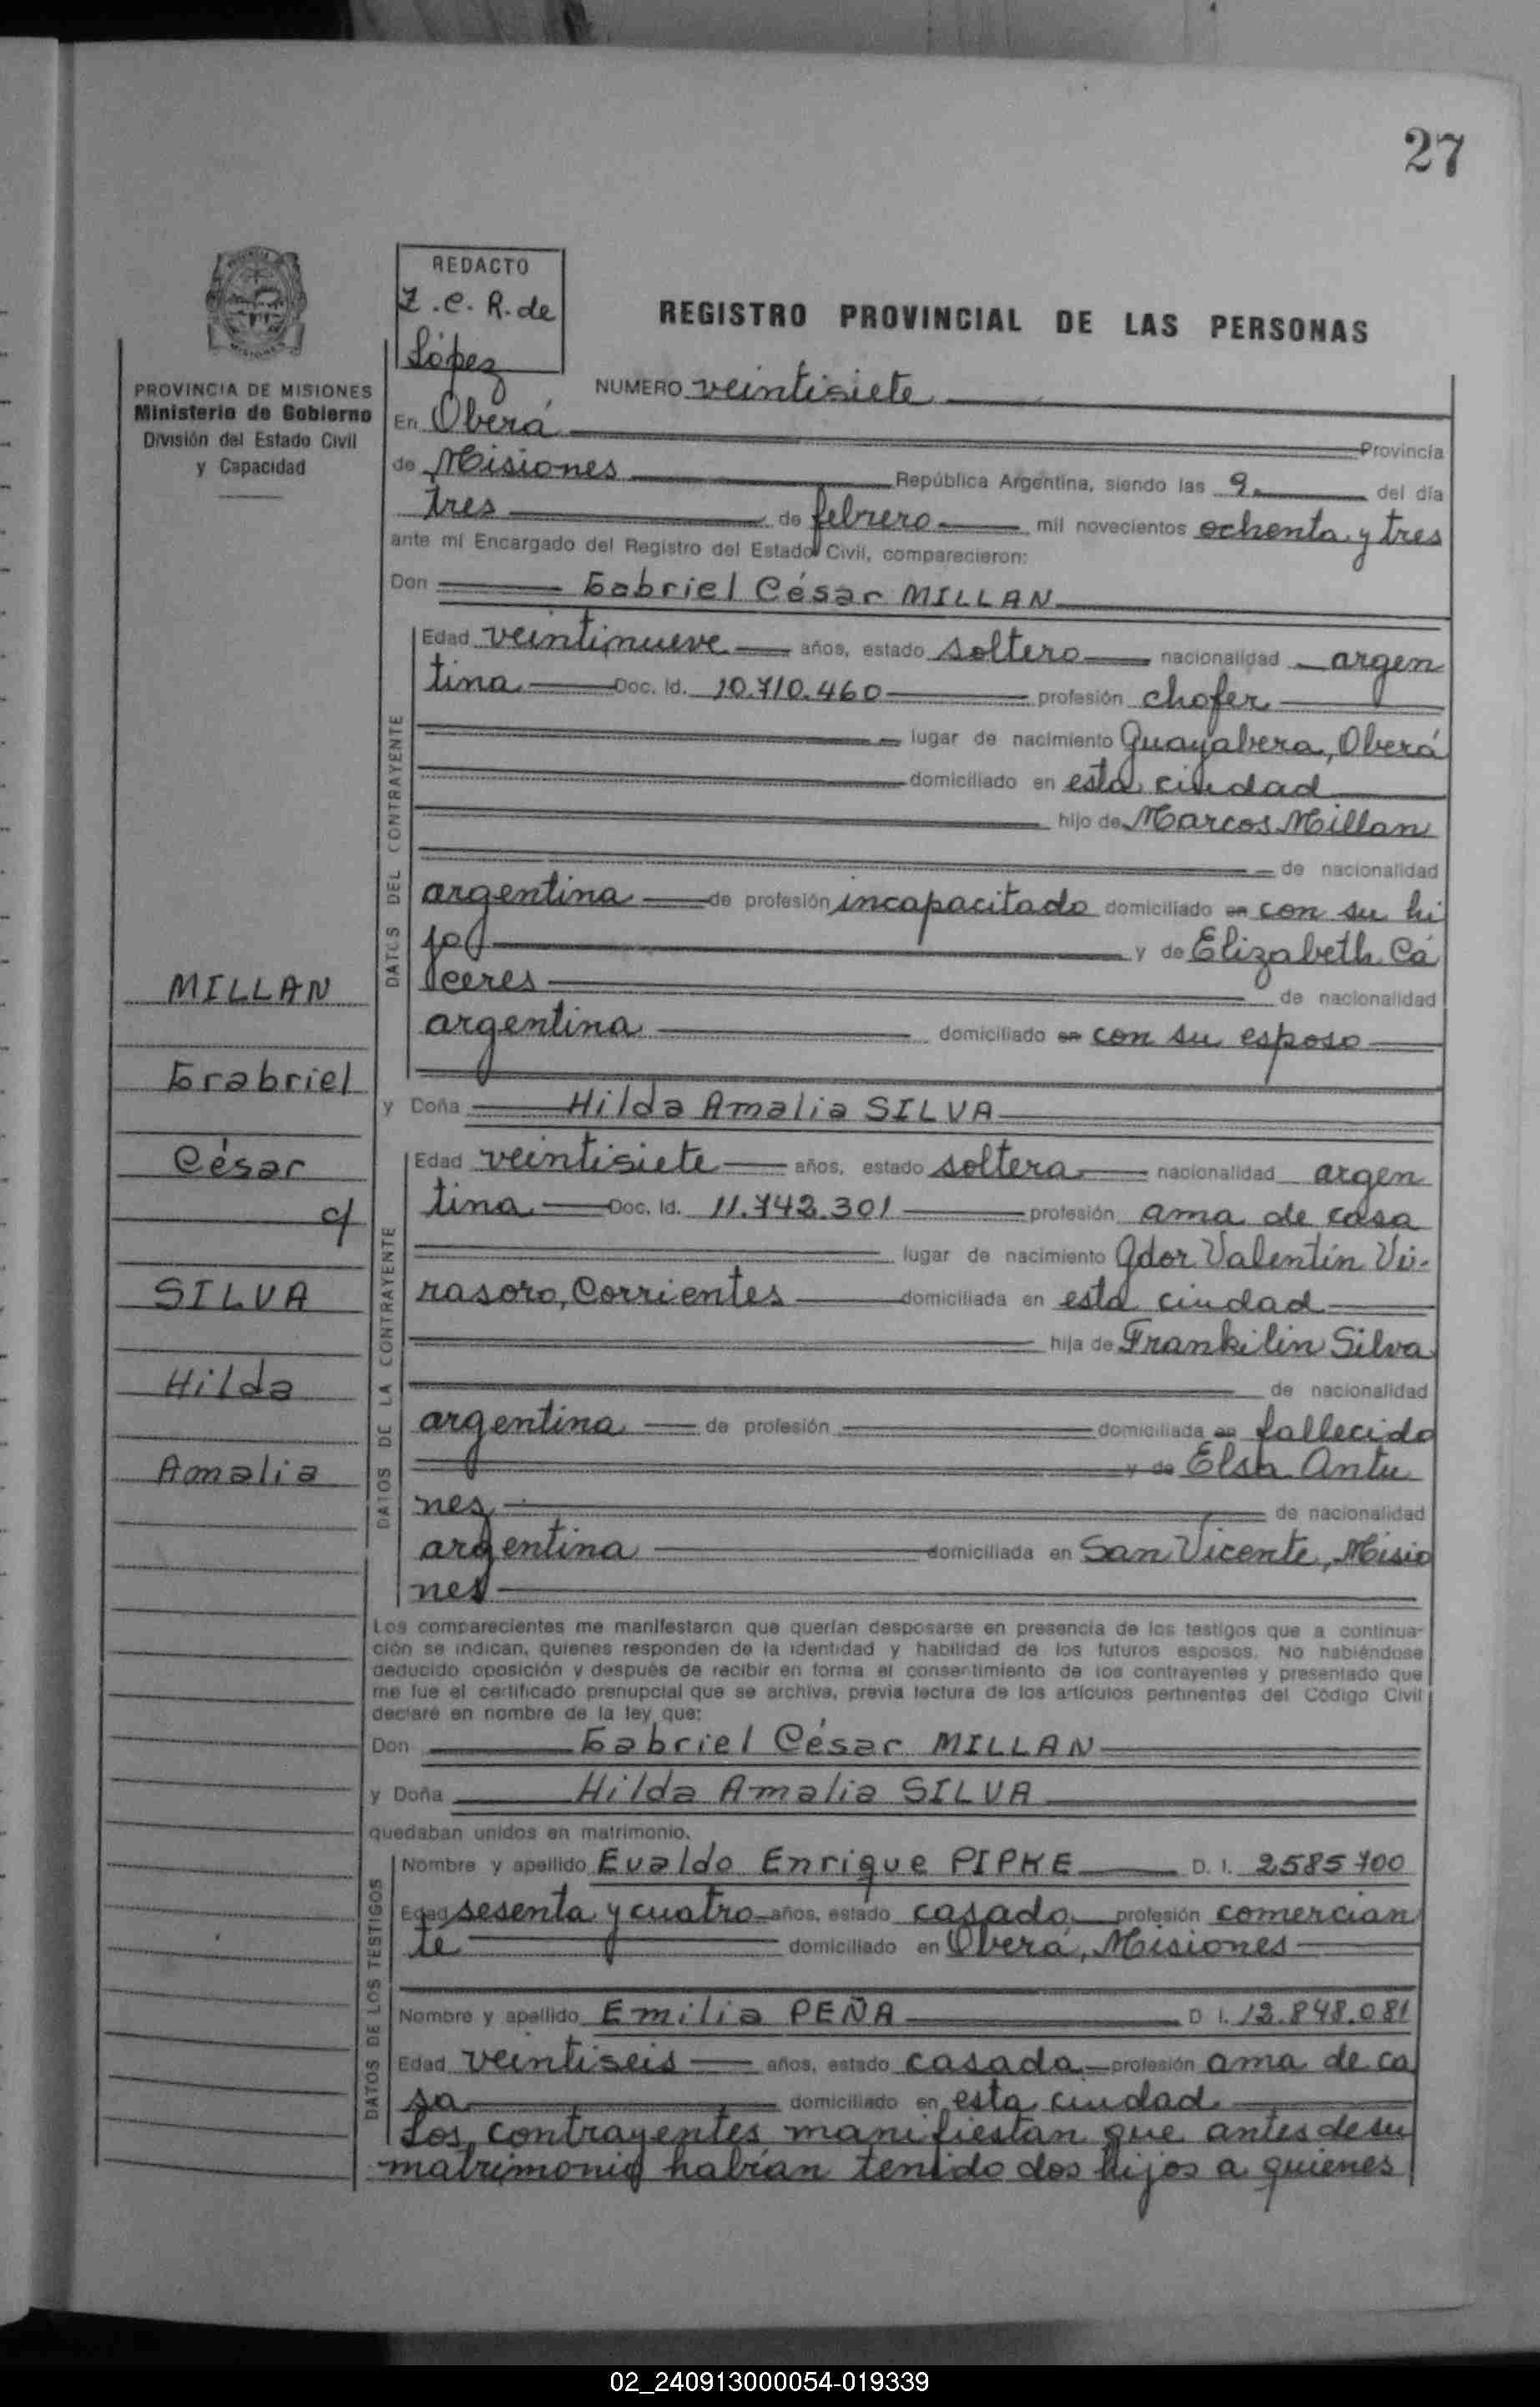 27
REDACTO
Z.C.R. de
López
REGISTRO PROVINCIAL DE LAS PERSONAS
PROVINCIA DE MISIONES
Ministerio de Gobierno
División del Estado Civil
y Capacidad
NUMERO veintisiete
En Oberá Provincia
de Misiones República Argentina, siendo las 9 del día
tres de febrero mil novecientos ochenta y tres
ante mí Encargado del Registro del Estado Civil, comparecieron:
Don Gabriel César MILLAN
DATOS DEL CONTRAYENTE
Edad veintinueve años, estado soltero nacionalidad argen
tina Doc. Id. 10.710.460 profesión chofer
lugar de nacimiento Guayabera, Oberá
domiciliado en esta ciudad
hijo de Marcos Millan
de nacionalidad
argentina de profesión incapacitado domiciliado en con su hi
jo y de Elizabeth Cá
ceres de nacionalidad
argentina domiciliado en con su esposo
MILLAN
Gabriel
César
c/
SILVA
Hilda
Amalia
y Doña Hilda Amalia SILVA
DATOS DE LA CONTRAYENTE
Edad veintisiete años, estado soltera nacionalidad argen
tina Doc. Id. 11.742.301 profesión ama de casa
lugar de nacimiento Gdor Valentín Vi-
rasoro, Corrientes domiciliada en esta ciudad
hija de Frankilin Silva
de nacionalidad
argentina de profesión domiciliada en fallecido
y de Elsa Antu
nez de nacionalidad
argentina domiciliada en San Vicente, Misio
nes
Los comparecientes me manifestaron que querían desposarse en presencia de los testigos que a continua-
ción se indican, quienes responden de la identidad y habilidad de los futuros esposos. No habiéndose
deducido oposición y después de recibir en forma el consentimiento de los contrayentes y presentado que
me fue el certificado prenupcial que se archiva, previa lectura de los artículos pertinentes del Código Civil
declaré en nombre de la ley que:
Don Gabriel César MILLAN
y Doña Hilda Amalia SILVA
quedaban unidos en matrimonio.
DATOS DE LOS TESTIGOS
Nombre y apellido Evaldo Enrique PIPKE D. I. 2585700
Edad sesenta y cuatro años, estado casado profesión comercian
te domiciliado en Oberá, Misiones
Nombre y apellido Emilia PEÑA D I. 12.848.081
Edad veintiseis años, estado casada profesión ama de ca
sa domiciliado en esta ciudad
Los contrayentes manifiestan que antes de su
matrimonio habían tenido dos hijos a quienes
02_240913000054-019339